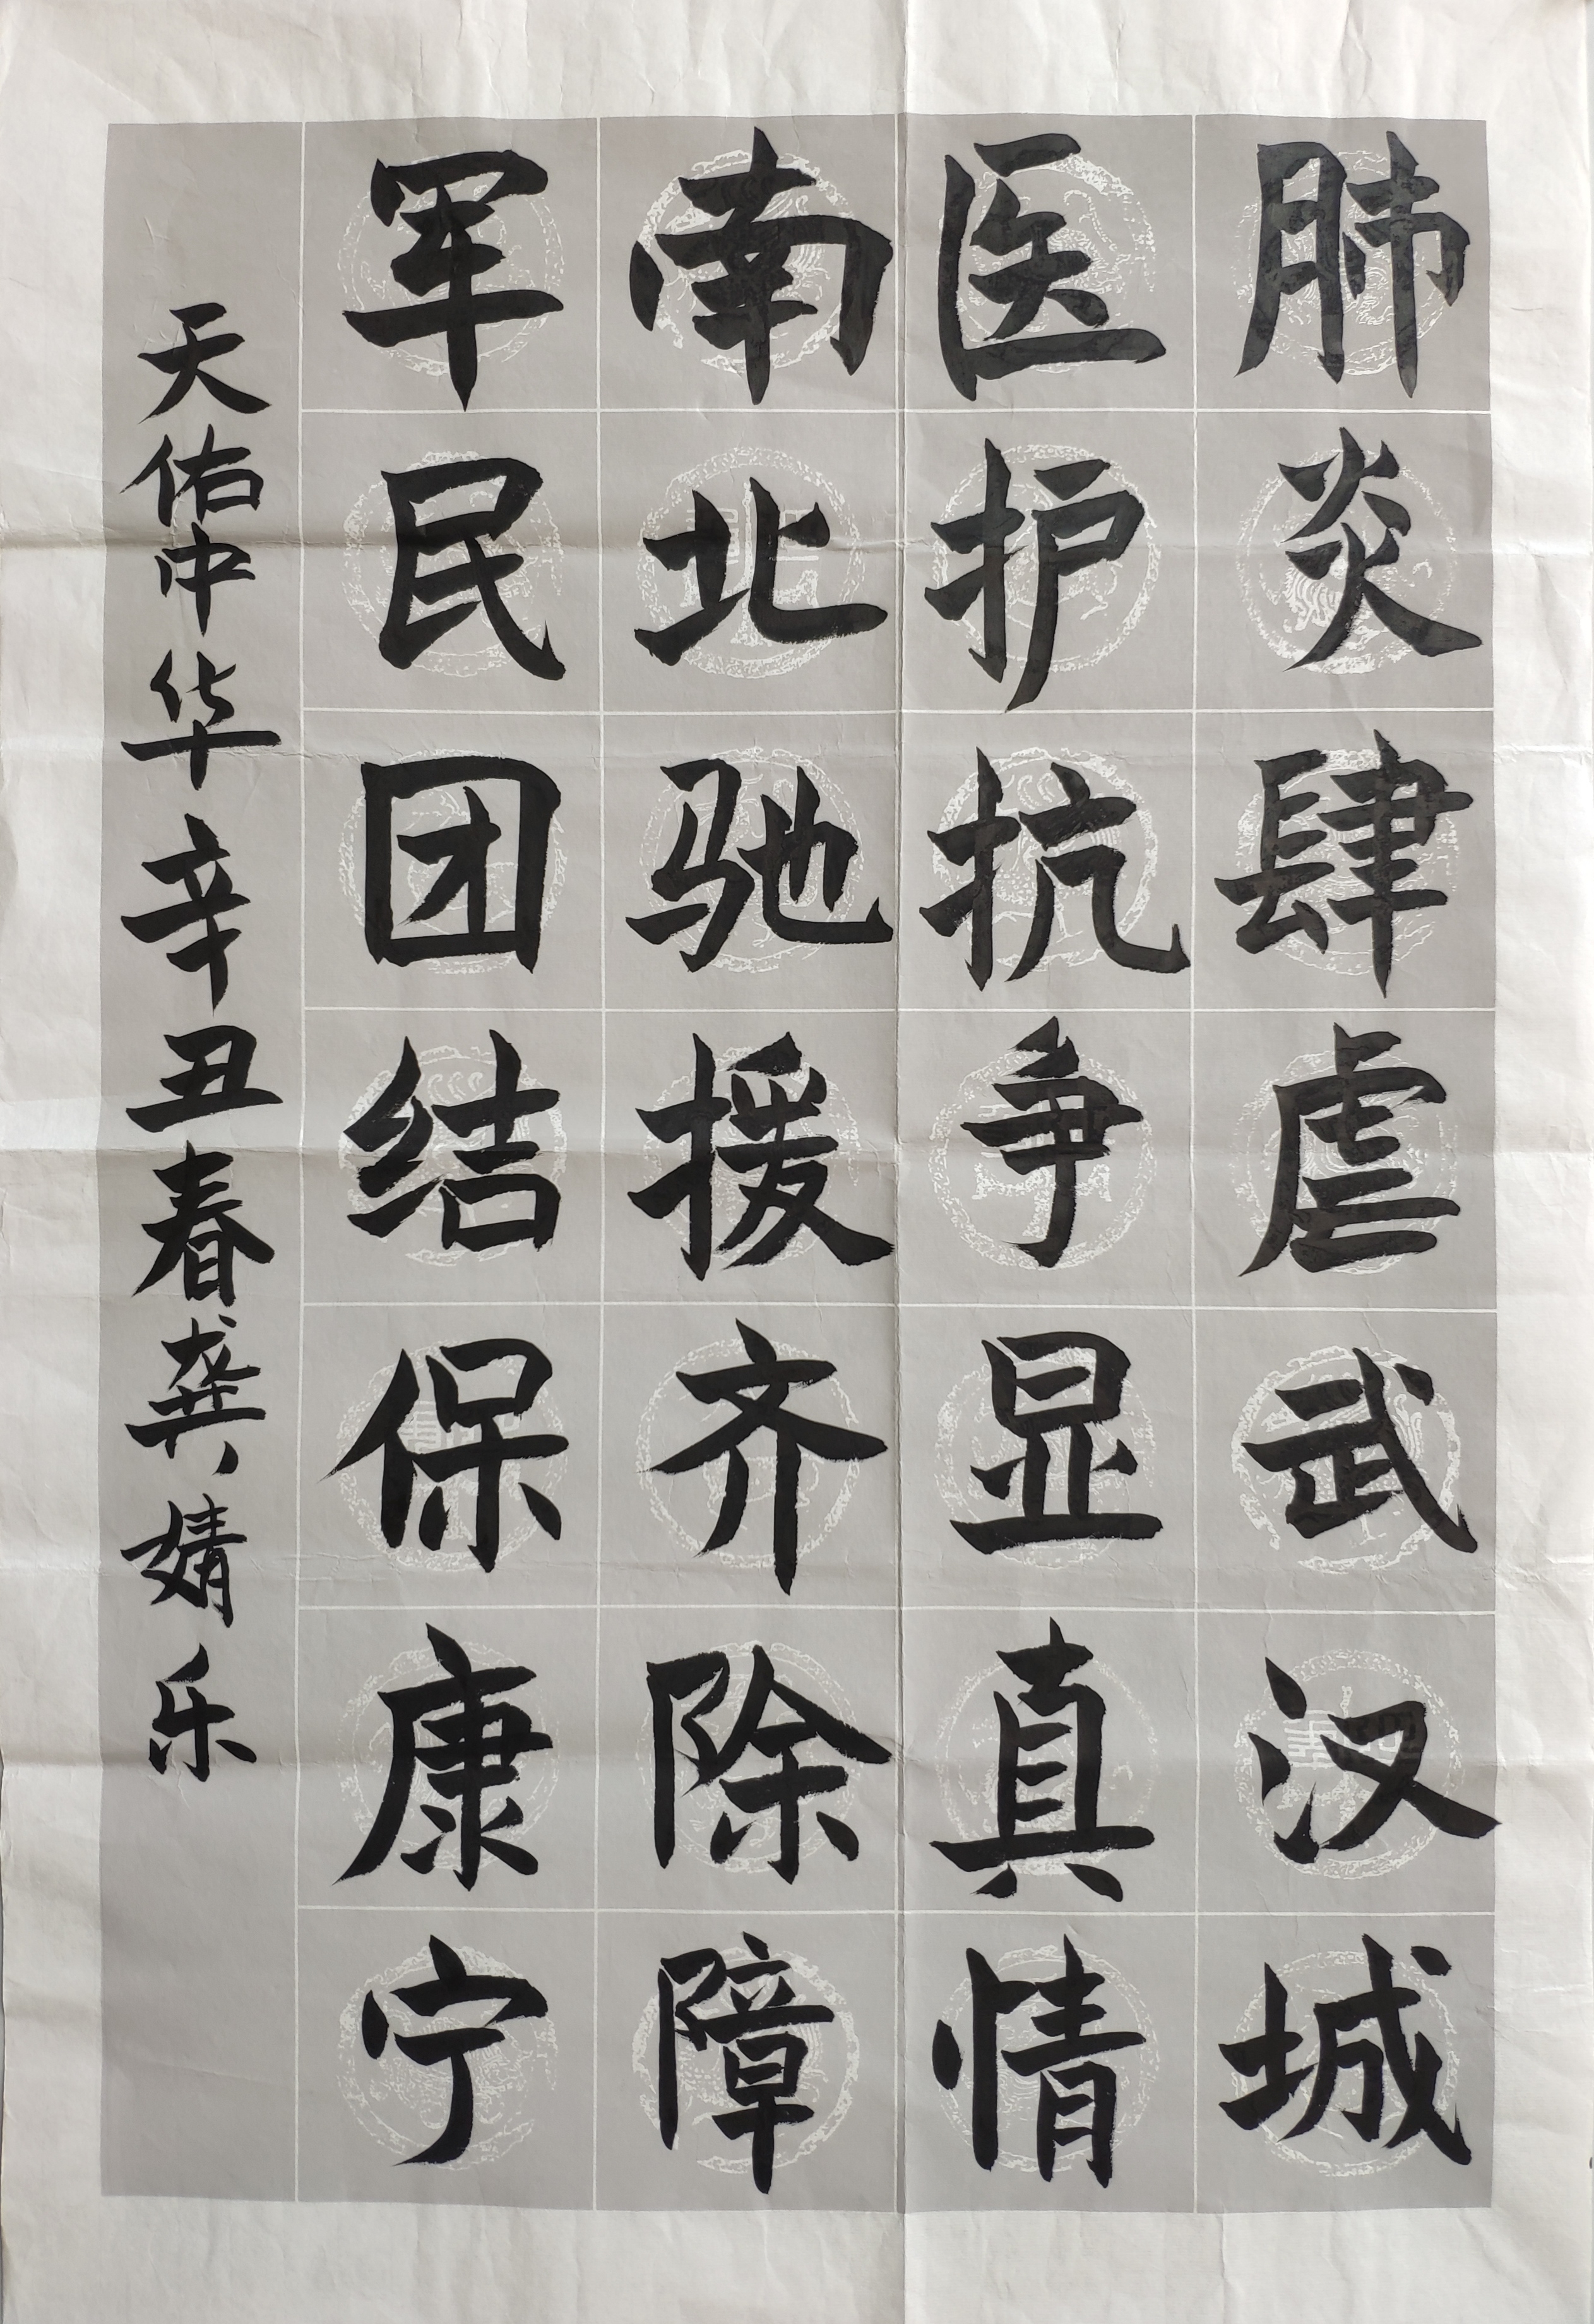 肺炎肆虐武汉城
医护抗争显真情
南北驰援齐除障
军民团结保康宁
天佑中华辛丑春龚婧乐